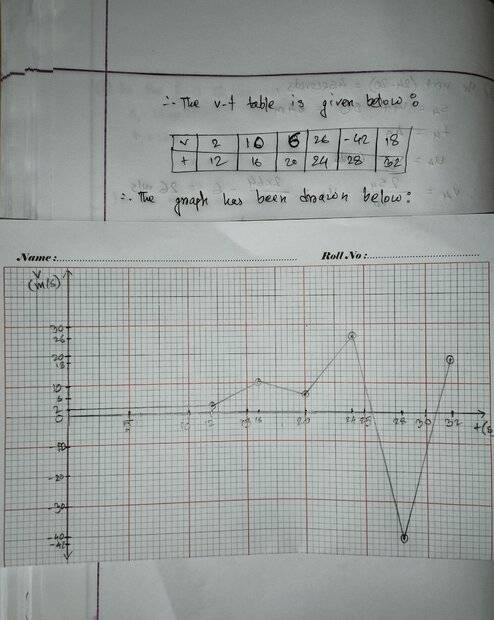 ∴ The v-t table is given below:
v 2 10 6 26 -42 18
t 12 16 20 24 28 32
∴ The graph has been drawn below:
Name: Roll No:
v
(m/s)
30
26
20
18
10
6
2
0
5 10 12 16 20 24 25 28 30 32
-10
-20
-30
-40
-42